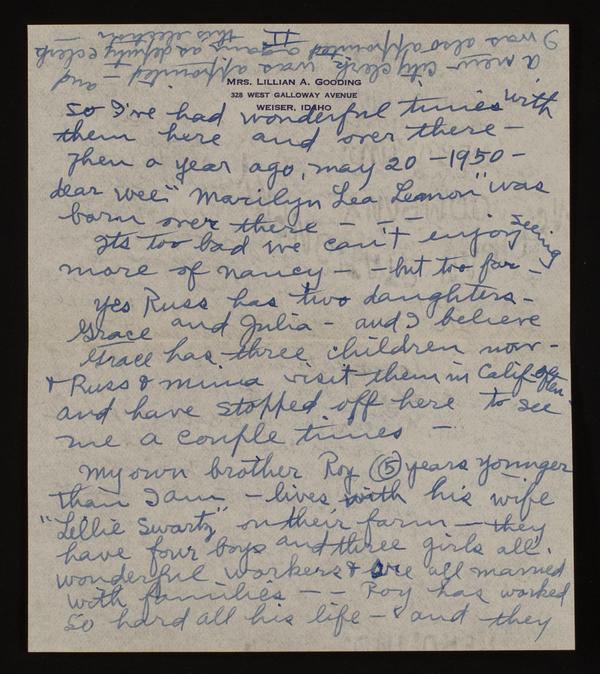 a new city clerk was appointed — and
I was also appointed again as deputy clerk
this election —
II
MRS. LILLIAN A. GOODING
328 WEST GALLOWAY AVENUE
WEISER, IDAHO
So I've had wonderful times with
them here and over there —
Then a year ago, may 20 — 1950 —
dear wee "Marilyn Lea Lemon" was
born over there — —
Its too bad we can't enjoy seeing
more of nancy — — but too far —
yes Russ has two daughters —
Grace and Julia — and I believe
Grace has three children now —
& Russ & mina visit them in Calif often
and have stopped off here to see
me a couple times —
my own brother Roy (5) years younger
than I am — lives with his wife
"Lellie Swartz" on their farm — they
have four boys and three girls all
wonderful workers & all married
with families — — Roy has worked
So hard all his life — & and they